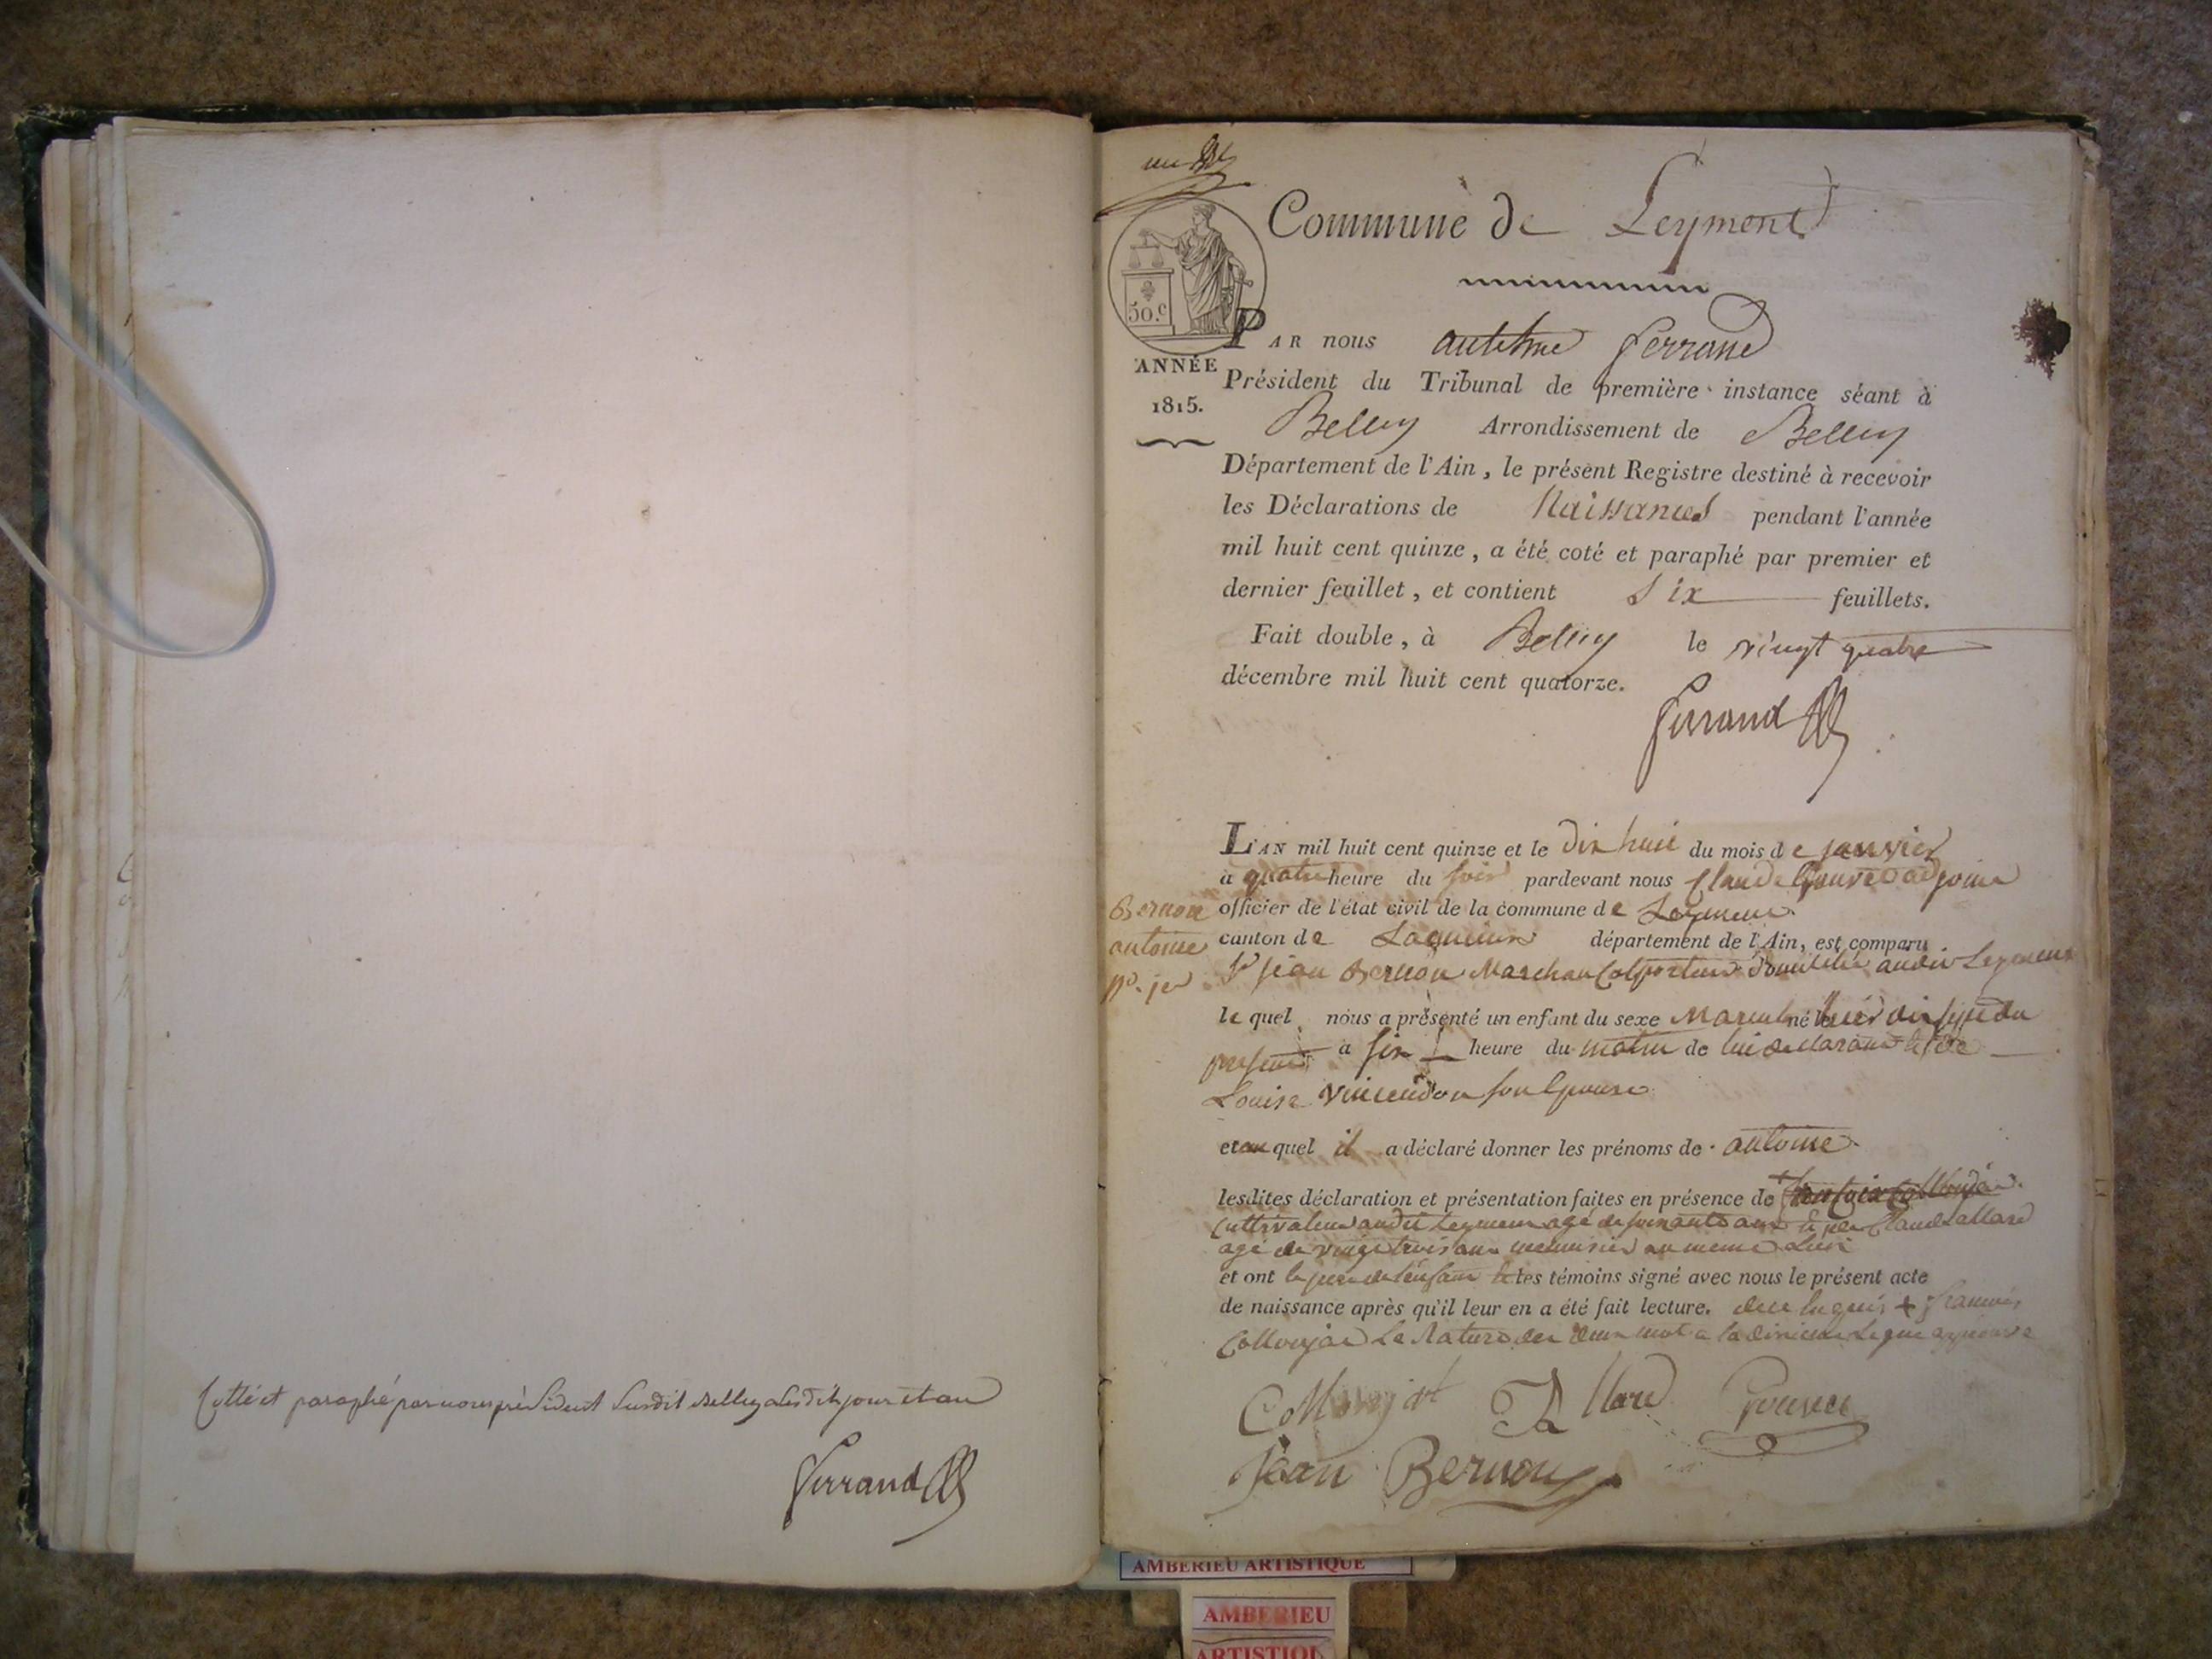 Cotté et paraphé par nous président susdit Belley lesdits jour et an
Ferrand
Commune de Leyment
50.c
ANNÉE
1815.
PAR nous antelme ferrand
Président du Tribunal de première instance séant à
Belley Arrondissement de Belley
Département de l'Ain, le présent Registre destiné à recevoir
les Déclarations de Naissances pendant l'année
mil huit cent quinze, a été coté et paraphé par premier et
dernier feuillet, et contient Six feuillets.
Fait double, à Belley le vingt quatre
décembre mil huit cent quatorze.
Ferrand
Bernon
antoine
L'AN mil huit cent quinze et le dix huit du mois de janvier
a quatre heure du soir pardevant nous Claude Gouvet adjoint
officier de l'état civil de la commune de Leyment
canton de Lagnieux département de l'Ain, est comparu
Sr jean Bernon Marchan Colporteur domicilié audit Leyment
le quel nous a présenté un enfant du sexe Masculin né le
present a six heure du matin de lui declarant et de
Louise vincendon son Epouse
et au quel il a déclaré donner les prénoms de antoine
lesdites déclaration et présentation faites en présence de
Cultivateur audit Leyment agé de soixante ans et Claude allard
agé de vingt trois ans menuisier au meme Lieu
et ont le pere de l'enfant et les témoins signé avec nous le présent acte
de naissance après qu'il leur en a été fait lecture. + francois
Collonjat La Nature des deux mot a la Ligne approuvé
Collonjat Allard Gouvet
Jean Bernon
AMBERIEU ARTISTIQUE
AMBERIEU